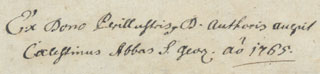 Ex Dono Perillustris D. Authoris accepit
Cœlestinus Abbas S. Geor. aõ 1765.